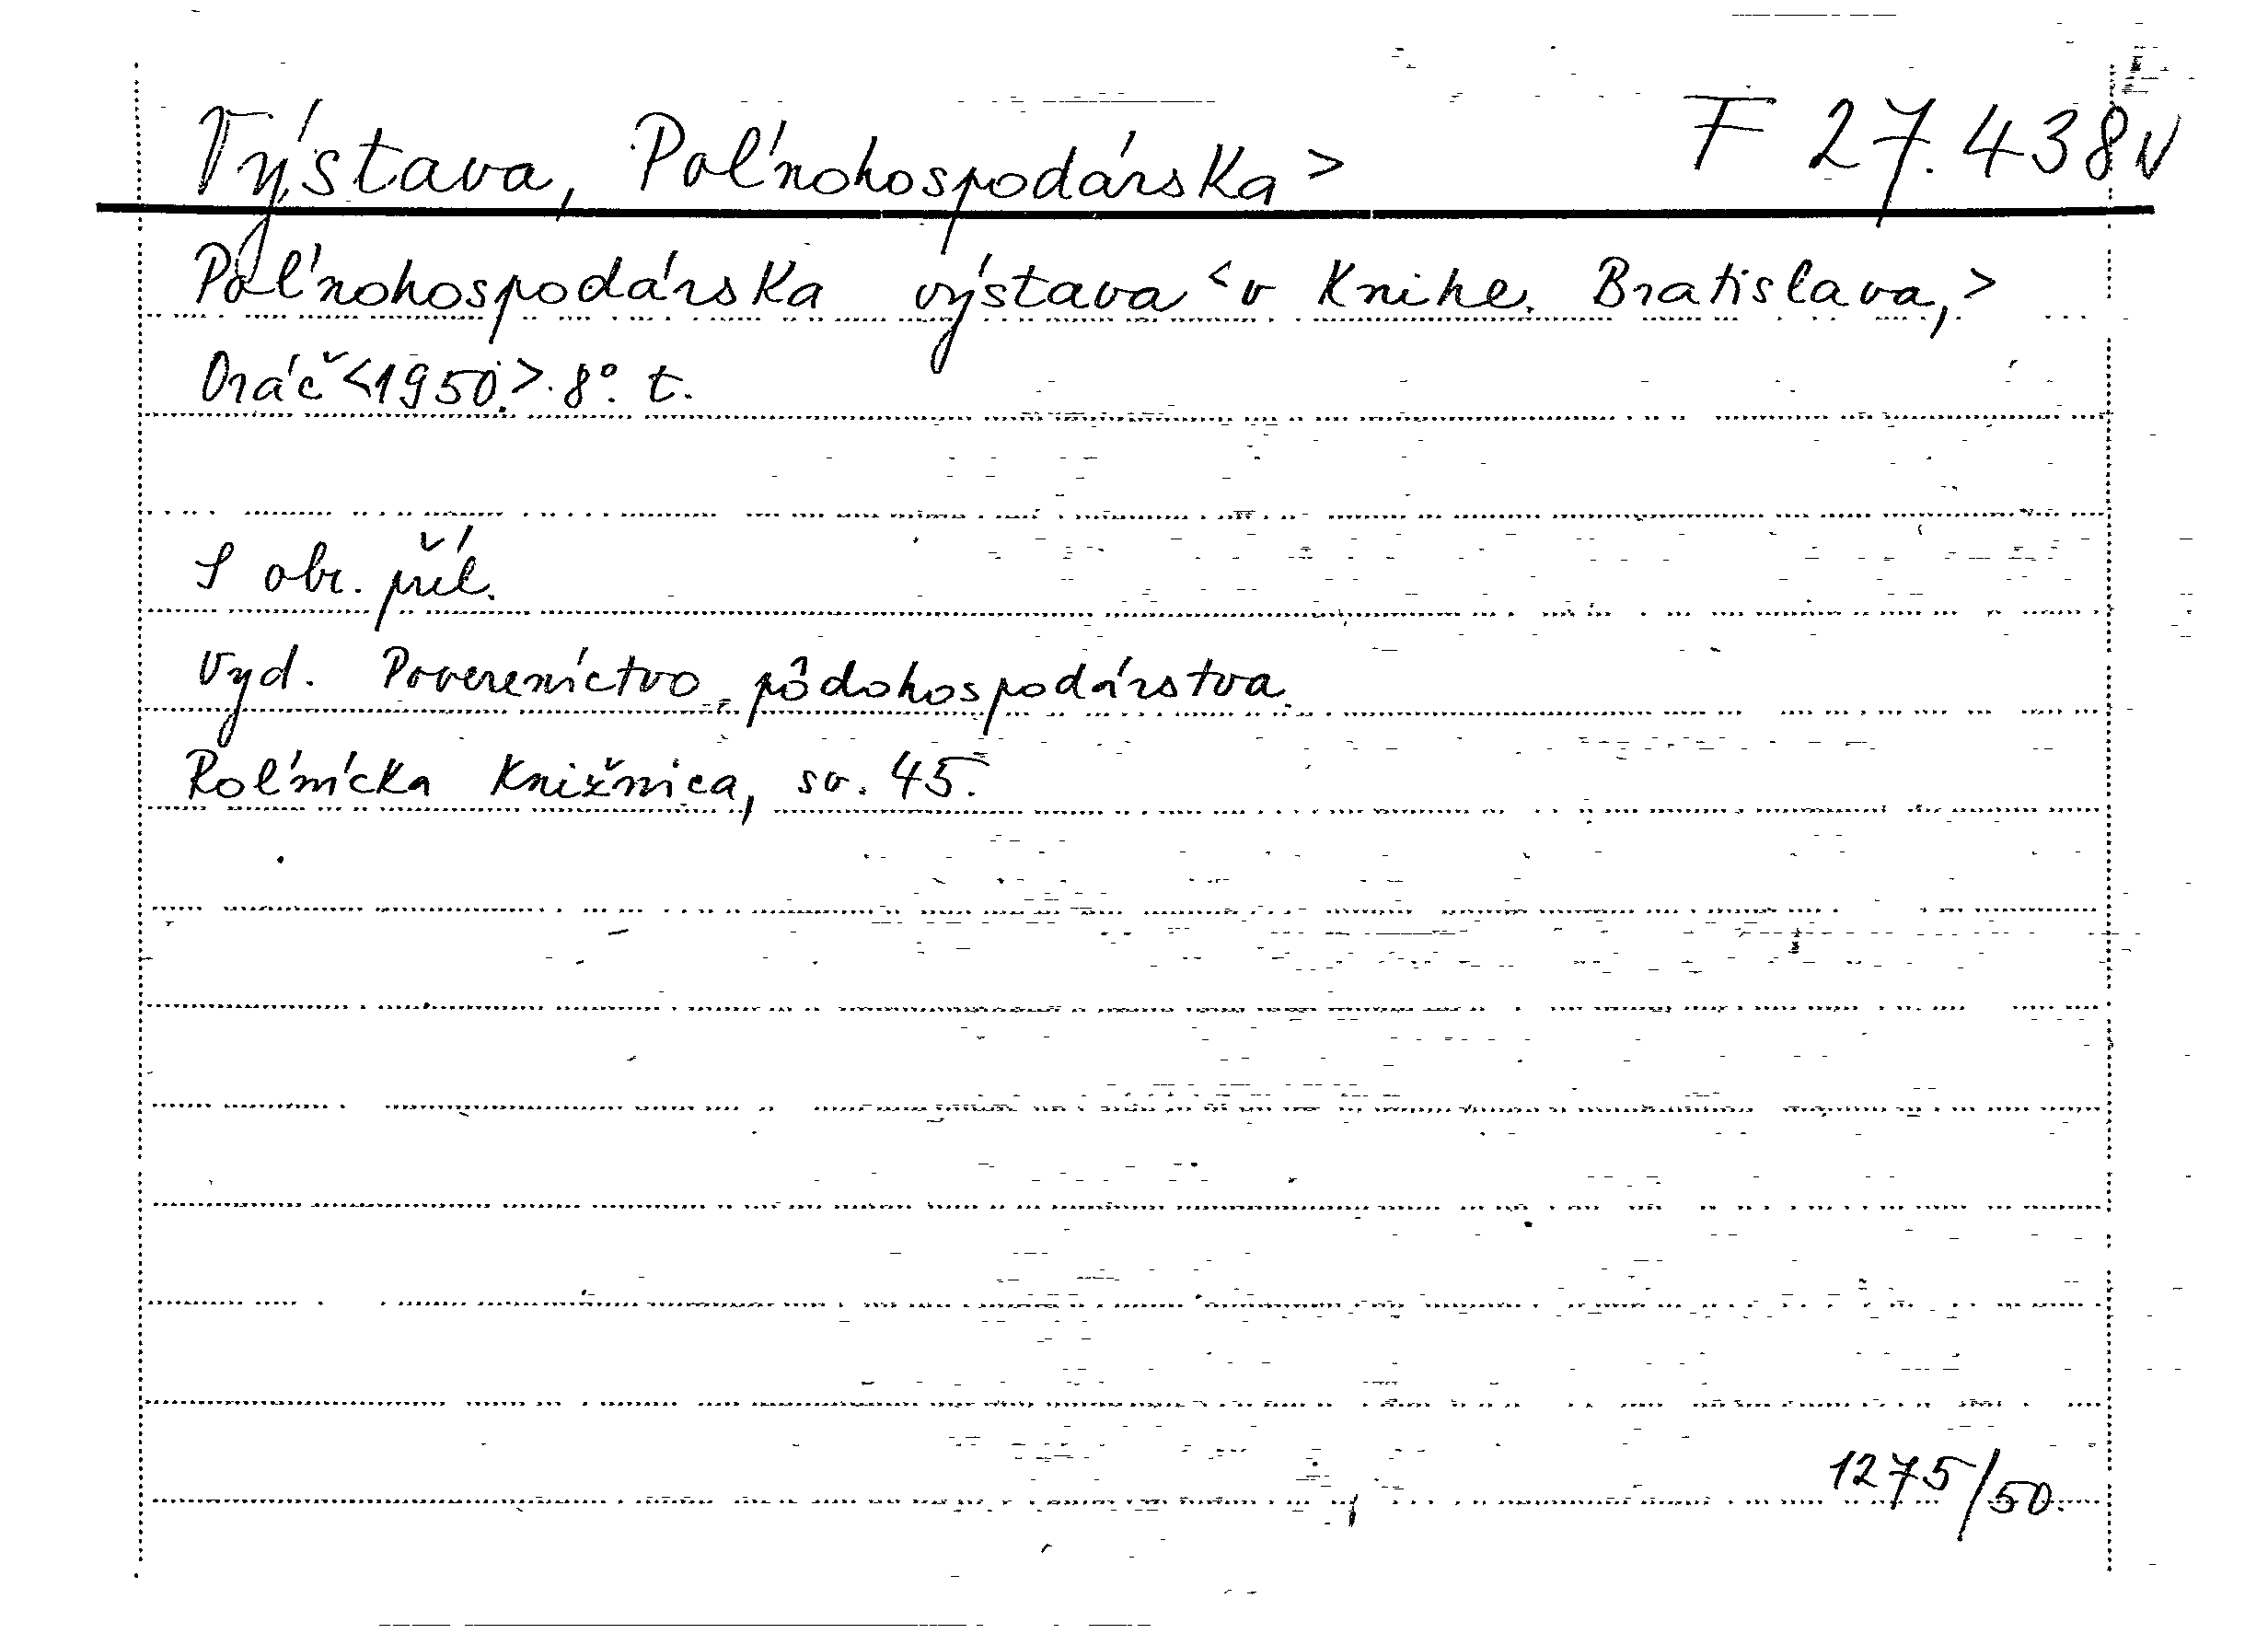 Výstava, Poľnohospodárska > F 27.438 V
Poľnohospodárska výstava < v Knihe. Bratislava, >
Oráč <1950.> 8°. t.
S obr. příl.
Vyd. Povereníctvo pôdohospodárstva.
Roľnícka Knižnica, sv. 45.
1275/50.